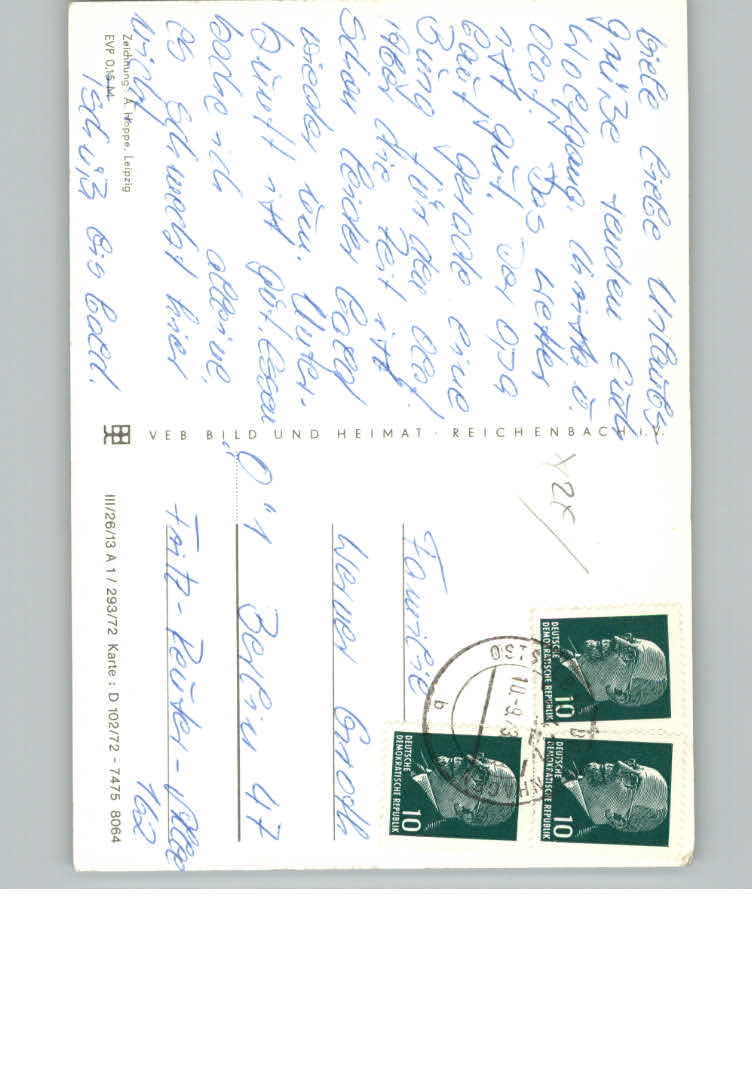 Viele liebe Urlaubs-
grüße senden Euch
Wolfgang, Christa u.
Olaf. Das Wetter
ist gut. Der Opa
baut gerade eine
für den Olaf.
Aber die Zeit ist
schon leider bald
wieder rum. Unter-
kunft ist gut. Essen
koche ich alleine,
es schmeckt hier
nicht.
Tschüß bis bald.
Zeichnung: A. Hoppe, Leipzig
EVP 0,15 M
VEB BILD UND HEIMAT · REICHENBACH i. V.
III/26/13 A 1 / 293/72 Karte: D 102/72 - 7475 8064
Familie
Werner
1 Berlin 47
Fritz-Reuter-Allee
162
DEUTSCHE
DEMOKRATISCHE REPUBLIK
10
DEUTSCHE
DEMOKRATISCHE REPUBLIK
10
DEUTSCHE
DEMOKRATISCHE REPUBLIK
10
10.-9.73
b